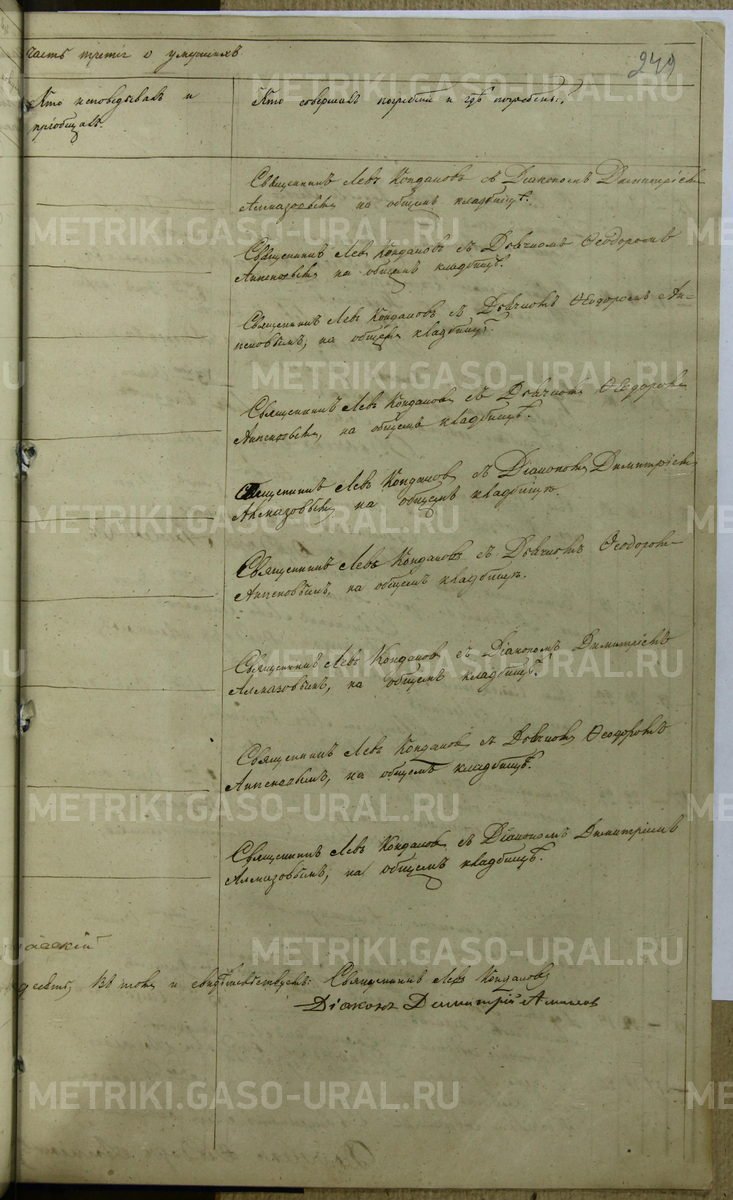 Часть третія о умершихъ
249
Кто исповѣдывалъ и
пріобщалъ.
Кто совершалъ погребеніе и гдѣ погребены.
Священникъ Левъ Кондаковъ съ Діакономъ Димитріемъ
Алмазовымъ на общемъ кладбищѣ.
Священникъ Левъ Кондаковъ съ Дьячкомъ Ѳеодоромъ
на общемъ кладбищѣ.
Священникъ Левъ Кондаковъ съ Дьячкомъ Ѳеодоромъ
на общемъ кладбищѣ.
Священникъ Левъ Кондаковъ съ Дьячкомъ Ѳеодоромъ
на общемъ кладбищѣ.
Священникъ Левъ Кондаковъ съ Діакономъ Димитріемъ
Алмазовымъ на общемъ кладбищѣ.
Священникъ Левъ Кондаковъ съ Дьячкомъ Ѳеодоромъ
на общемъ кладбищѣ.
Священникъ Левъ Кондаковъ съ Діакономъ Димитріемъ
Алмазовымъ, на общемъ кладбищѣ.
Священникъ Левъ Кондаковъ съ Дьячкомъ Ѳеодоромъ
на общемъ кладбищѣ.
Священникъ Левъ Кондаковъ съ Діакономъ Димитріемъ
Алмазовымъ, на общемъ кладбищѣ.
въ томъ и свидѣтельствуемъ: Священникъ Левъ Кондаковъ
Діаконъ Димитрій Алмазовъ
METRIKI.GASO-URAL.RU